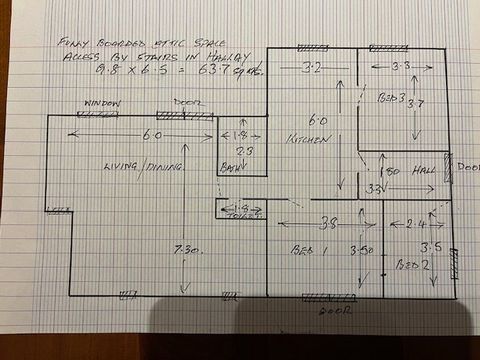 FULLY BOARDED ATTIC SPACE
ACCESS BY STAIRS IN HALLAY
9.8 X 6.5 = 63.7 sq mts.
WINDOW
DOOR
3.2
3.3
BED 3
3.7
6.0
KITCHEN
6.0
1.8
2.3
BATH
LIVING/DINING
1.50
HALL
DOOR
3.3
1.8
TOILET
3.8
2.4
7.30.
BED 1
3.50
3.5
BED 2
DOOR